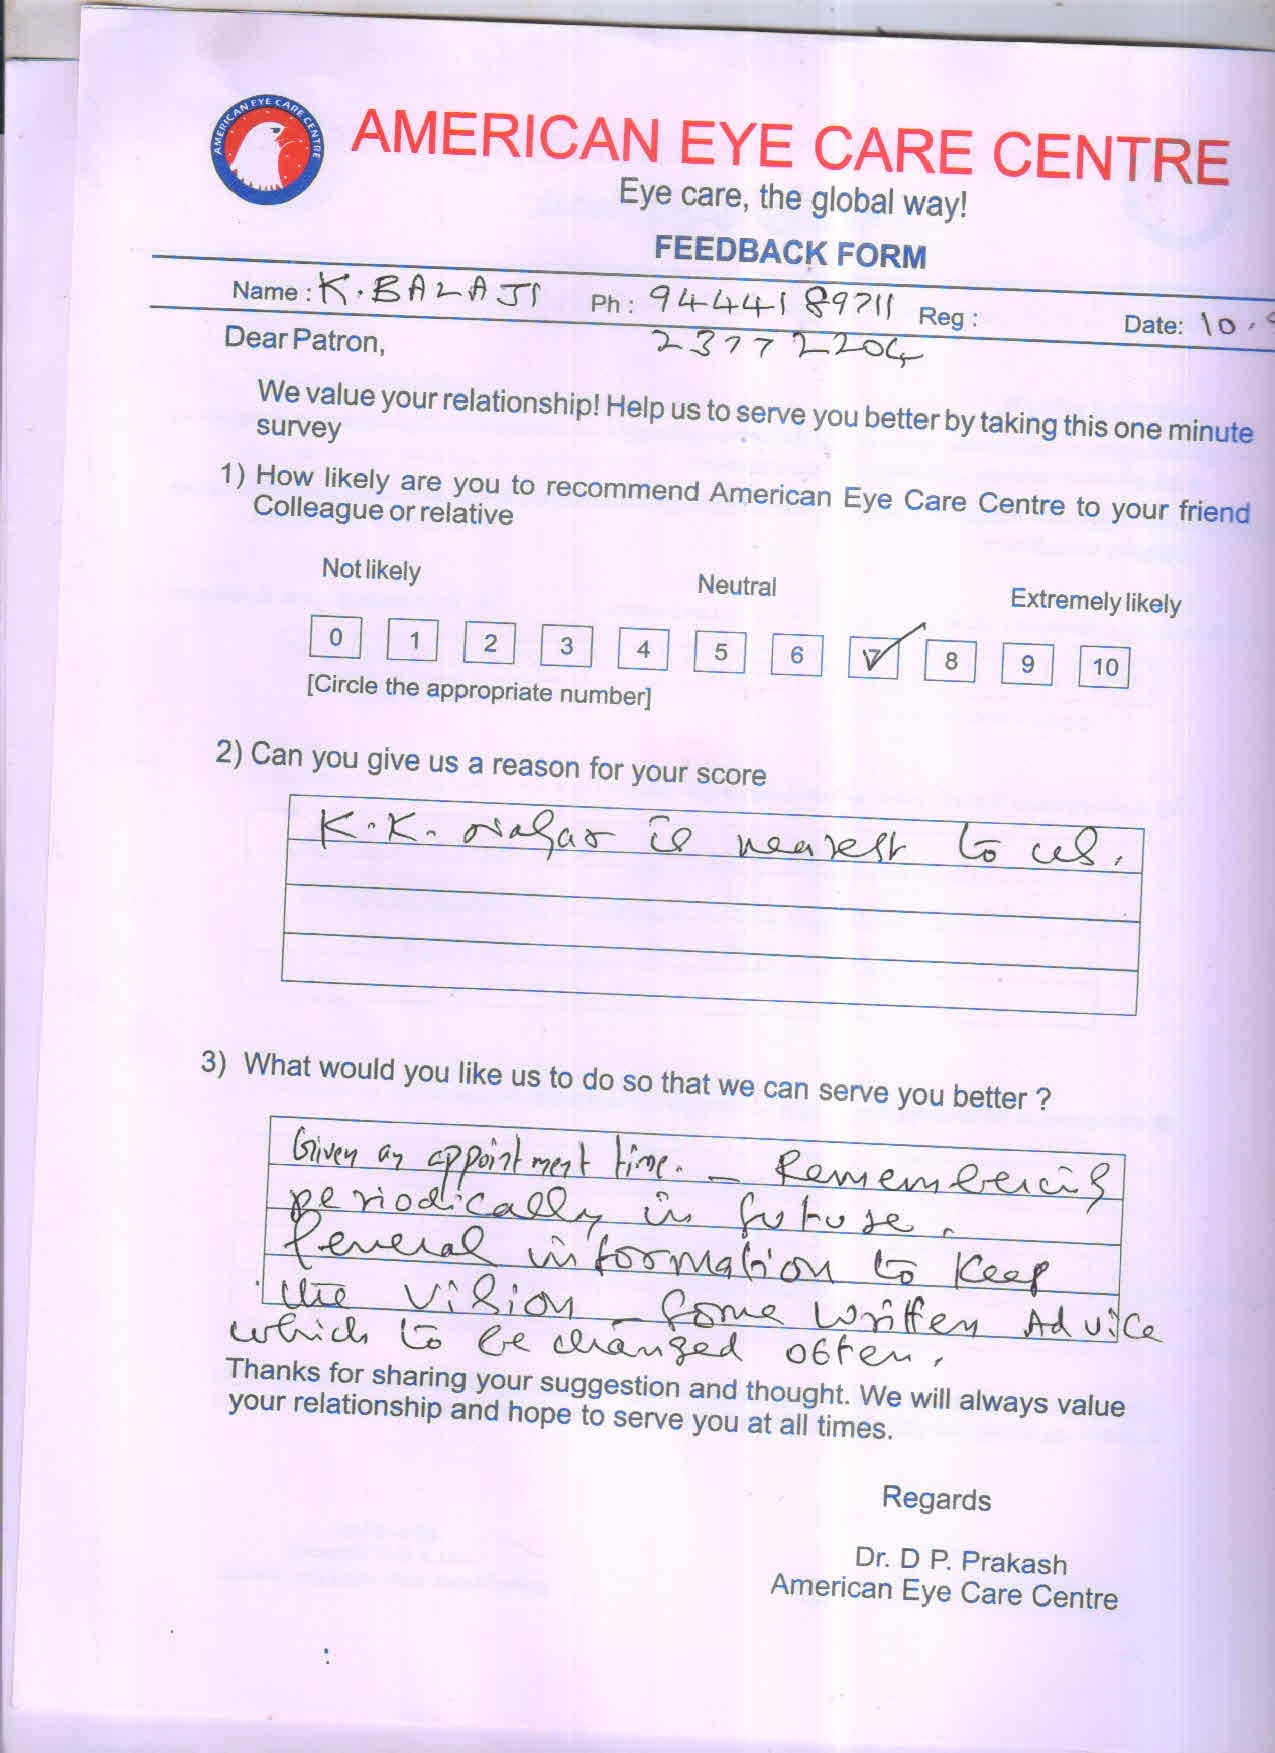 AMERICAN EYE CARE CENTRE
AMERICAN EYE CARE CENTRE
Eye care, the global way!
FEEDBACK FORM
Name : K. BALAJI Ph : 9444189711 Reg : Date: 10.
Dear Patron, 23772204
We value your relationship! Help us to serve you better by taking this one minute
survey
1) How likely are you to recommend American Eye Care Centre to your friend
Colleague or relative
Not likely Neutral Extremely likely
0 1 2 3 4 5 6 7 8 9 10
[Circle the appropriate number]
2) Can you give us a reason for your score
K.K. Nagar is nearest to us.
3) What would you like us to do so that we can serve you better ?
Given an appointment time. - Remembering
periodically in future.
General information to keep
the vision - Some written Advice
which to be changed often.
Thanks for sharing your suggestion and thought. We will always value
your relationship and hope to serve you at all times.
Regards
Dr. D P. Prakash
American Eye Care Centre